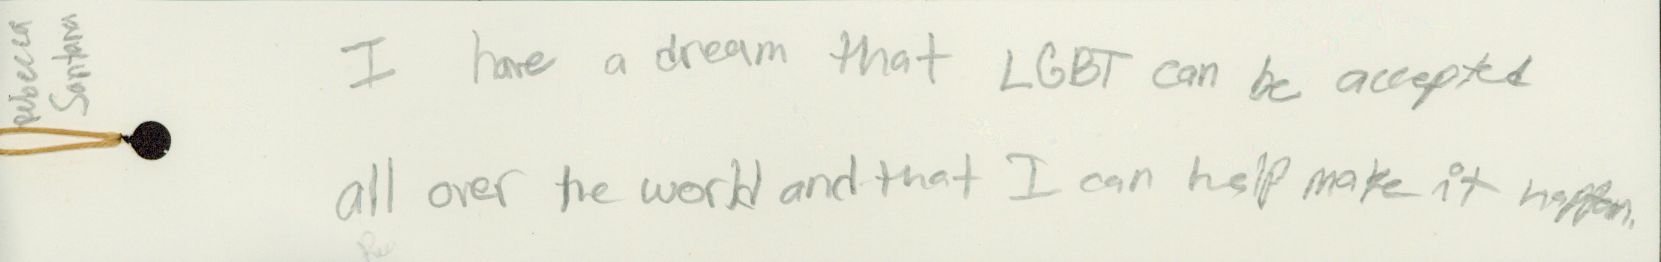 Rebecca
Santana
I have a dream that LGBT can be accepted
all over the world and that I can help make it happen.